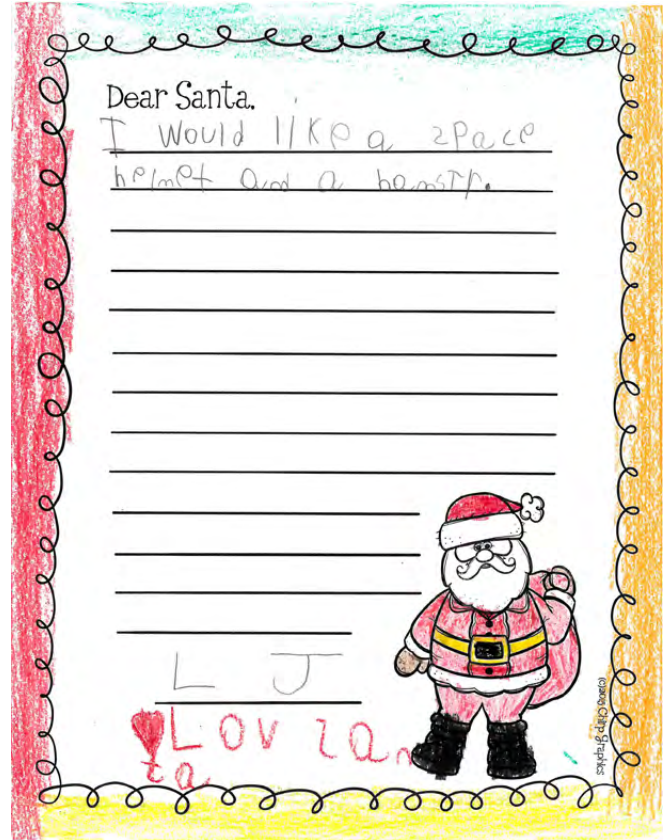 Dear Santa,
I would like a zpace
helmet and a hamstr.
L J
Lov zan
ta
(c)2015 Chirp Graphics